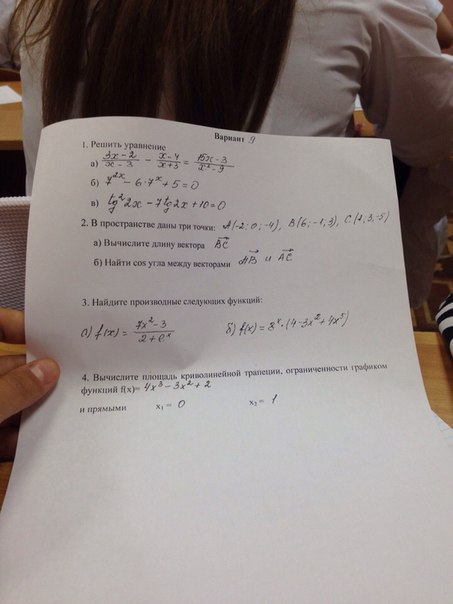 Вариант 9
1. Решить уравнение
а) (3x-2)/(x-3) - (x-4)/(x+3) = (15x-3)/(x²-9)
б) 7^2x - 6·7^x + 5 = 0
в) lg² 2x - 7 lg 2x + 10 = 0
2. В пространстве даны три точки: A(-2; 0; -4), B(6; -1; 3), C(1; 3; -5)
а) Вычислите длину вектора BC
б) Найти cos угла между векторами AB и AC
3. Найдите производные следующих функций:
а) f(x) = (7x²-3)/(2+e^x) б) f(x) = 8^x·(4-3x²+4x³)
4. Вычислите площадь криволинейной трапеции, ограниченности графиком
функций f(x)= 4x³-3x²+2
и прямыми x₁ = 0 x₂ = 1